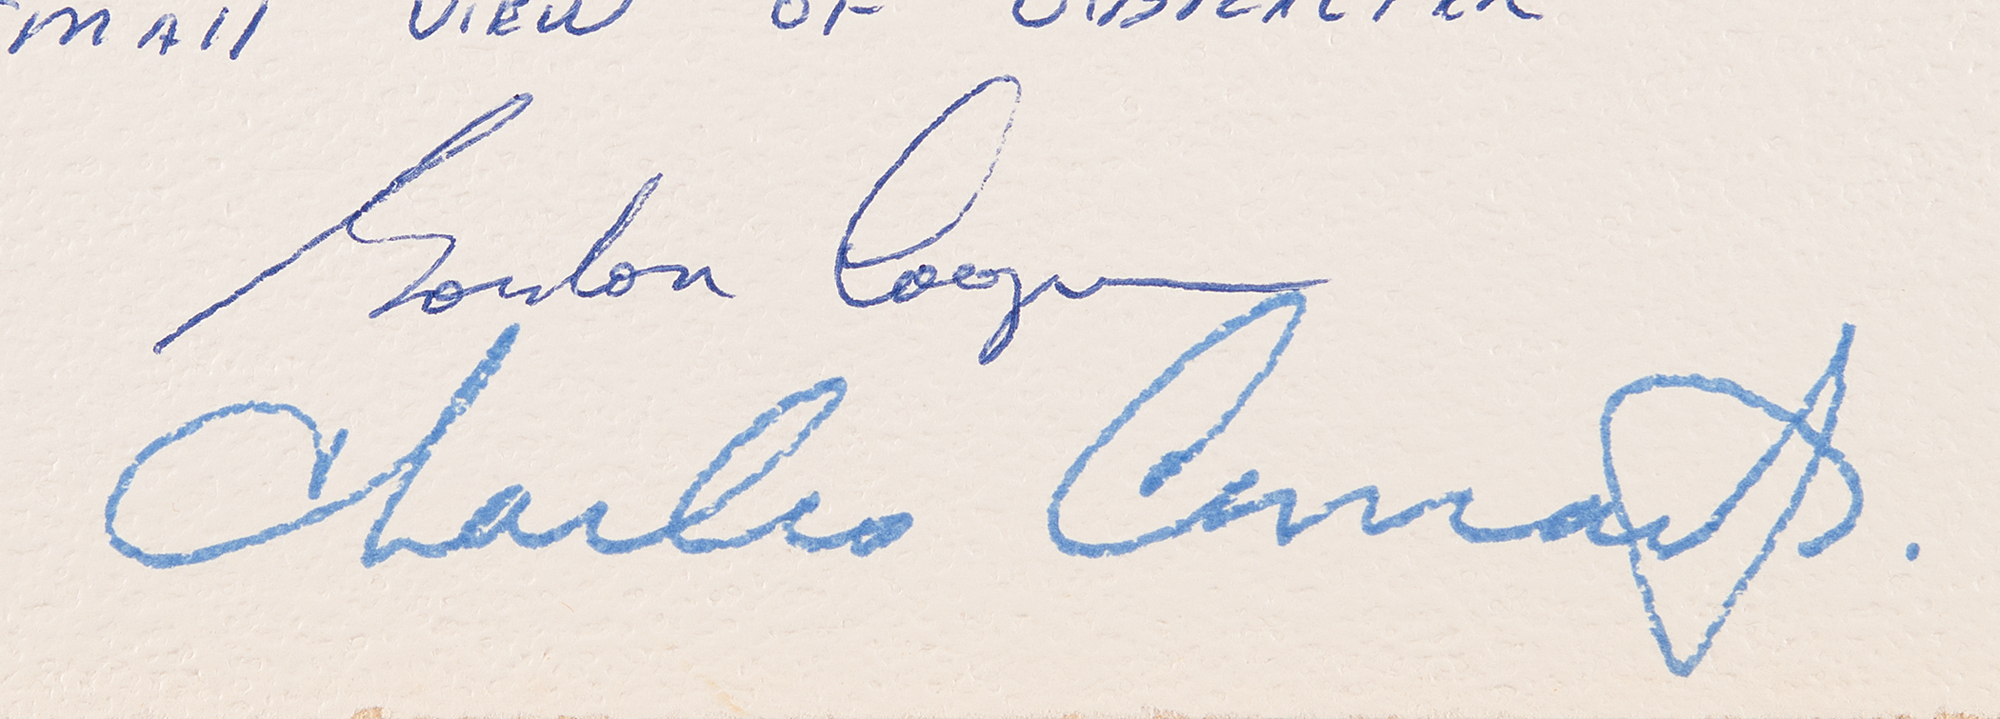 SMALL VIEW OF
Gordon Cooper
Charles Conrad Jr.